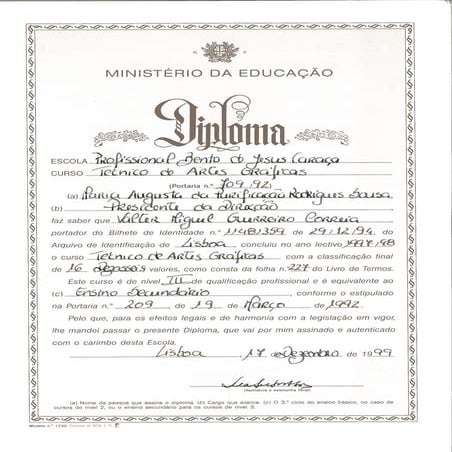 R. P.
MINISTÉRIO DA EDUCAÇÃO
Diploma
ESCOLA Profissional Bento de Jesus Caraça
CURSO Técnico de Artes Gráficas
(Portaria n.º 709/92)
(a) Maria Augusta da Purificação Rodrigues Sousa
(b) Presidente da Direcção
faz saber que Valter Miguel Guerreiro Correia
portador do Bilhete de Identidade n.º 11481359 de 29/12/94 do
Arquivo de Identificação de Lisboa concluiu no ano lectivo 1997/98
curso Técnico de Artes Gráficas com a classificação final
de 16 valores, como consta da folha n.º 227 do Livro de Termos.
Este curso é de nível III de qualificação profissional e é equivalente ao
(c) Ensino Secundário conforme o estipulado
na Portaria n.º 209 de 19 de Março de 1992
Pelo que, para os efeitos legais e de harmonia com a legislação em vigor,
lhe mandei passar o presente Diploma, que vai por mim assinado e autenticado
com o carimbo desta Escola.
Lisboa 17 de Dezembro de 1999
(a) Nome da pessoa que assina o diploma. (b) Cargo que exerce. (c) O 3.º ciclo do ensino básico, no caso de
cursos do nível 2, ou o ensino secundário para os cursos de nível 3.